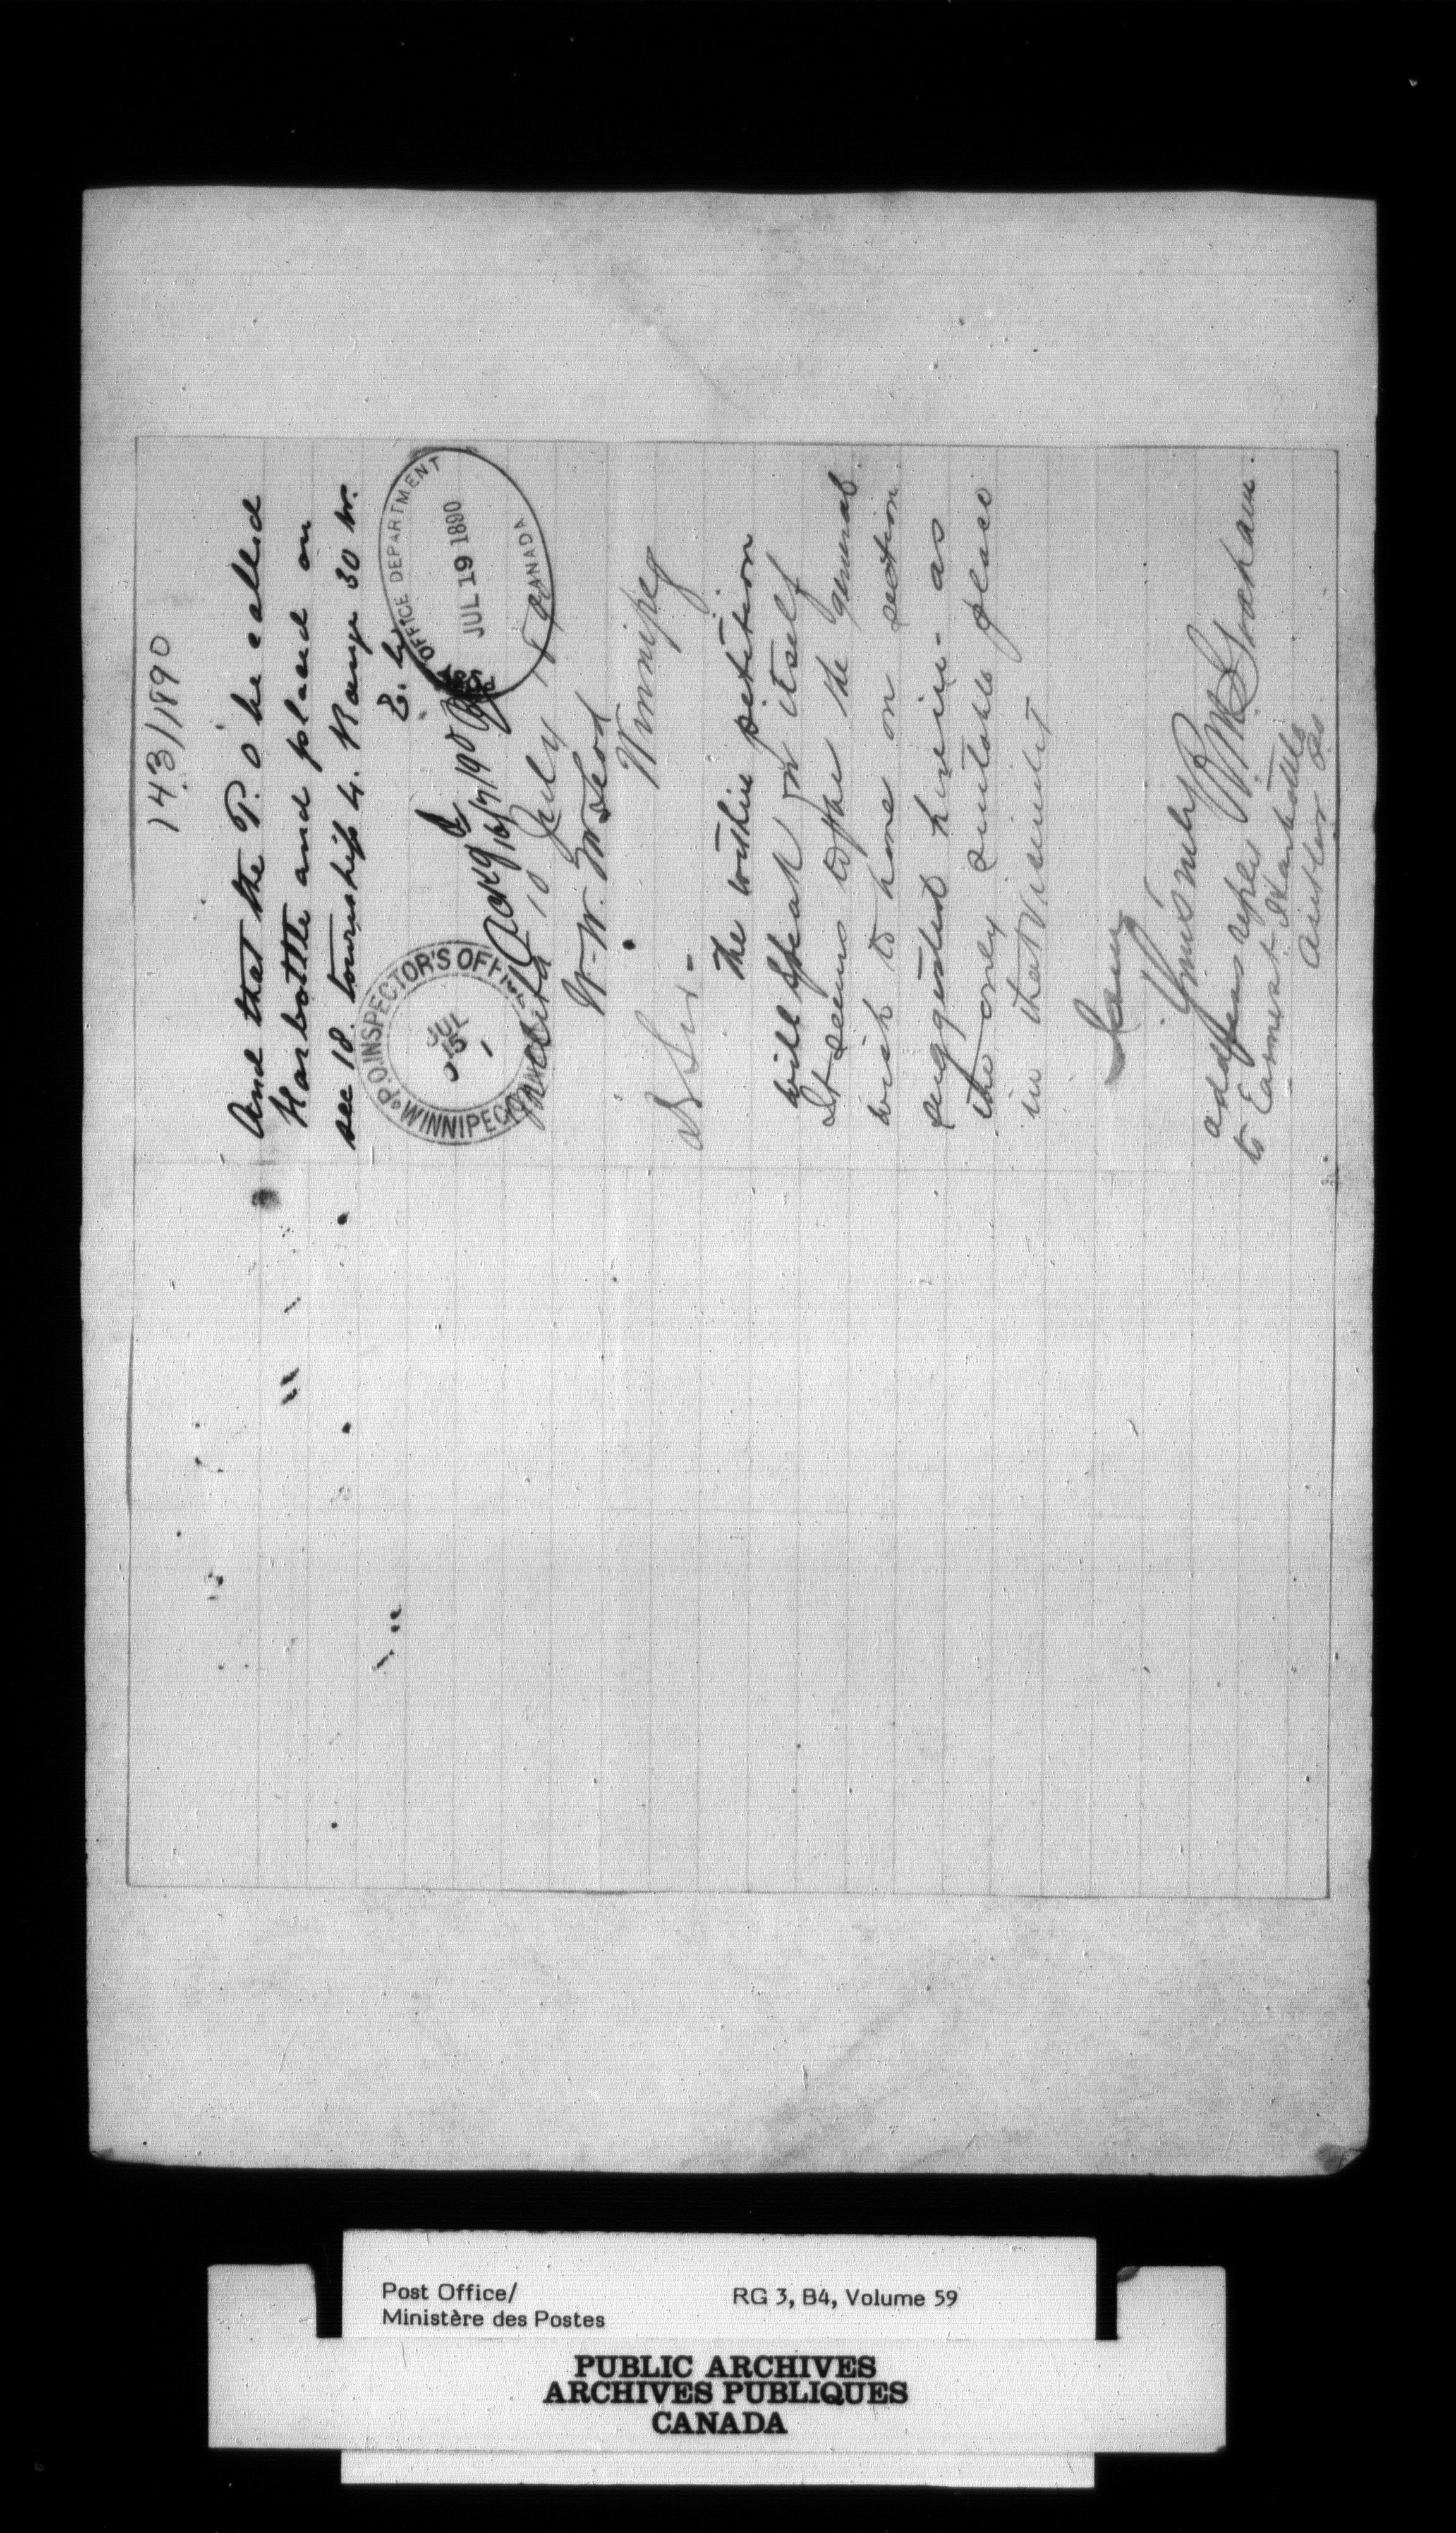 143/1890
And that the P.O be called
Harbottle and placed on
sec 18. township 4. Range 30 W.
OFFICE DEPARTMENT
JUL 19 1890
CANADA
P.O. INSPECTOR'S OFFICE
JUL
15
WINNIPEG
Melita 10 July 1890
W. W. McLeod
Winnipeg
D Sir -
The within petition
will speak for itself
It seems to be the general
wish to have on section
suggested herein - as
the only suitable place
in that vicinity
I am
Yours truly
R. M. Graham.
address reply
to Earnest Harbottle
Antler Po.
Post Office/
Ministère des Postes
RG 3, B4, Volume 59
PUBLIC ARCHIVES
ARCHIVES PUBLIQUES
CANADA